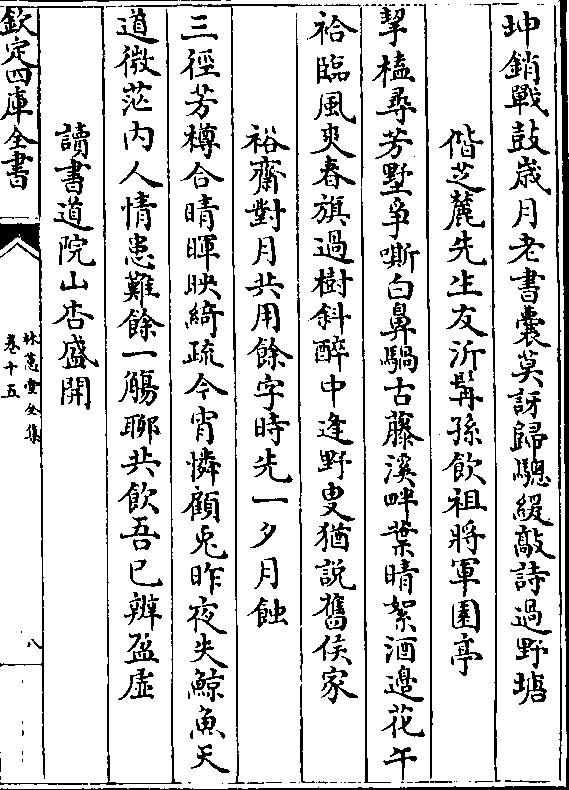 坤銷戰鼓歲月老書囊莫訝歸驄緩敲詩過野塘
偕芝麓先生友沂髯孫飲祖將軍園亭
挈榼尋芳墅爭嘶白鼻騧古藤溪畔葉晴絮酒邊花午
袷臨風爽春旗過樹斜醉中逢野叟猶說舊侯家
裕齋對月共用餘字時先一夕月蝕
三徑芳樽合晴暉映綺疏今宵憐顧兎昨夜失鯨魚天
道微茫内人情患難餘一觴聊共飲吾已辨盈虛
讀書道院山杏盛開
欽定四庫全書
林蕙堂全集
卷十五
八